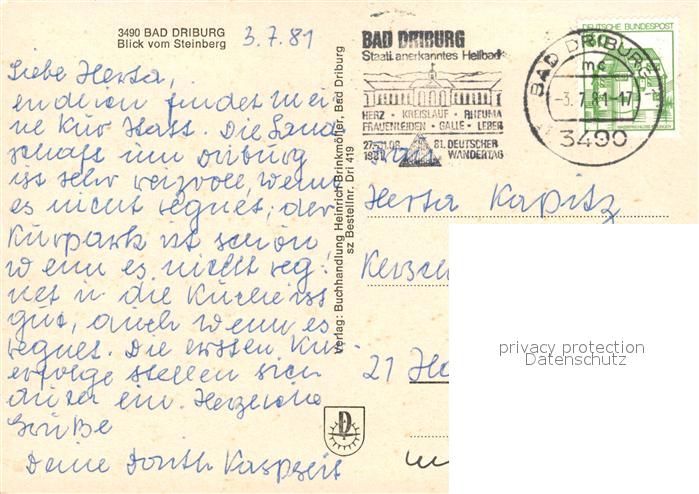 3490 BAD DRIBURG
Blick vom Steinberg
3.7.81
Liebe Herta,
endlich findet mei
ne Kur statt. Die Land
schaft um Driburg
ist sehr reizvoll, wenn
es nicht regnet; der
Kurpark ist schön
wenn es nicht reg-
net u die Küche ist
gut, auch wenn es
regnet. Die ersten Kur
erfolge stellen sich
auch ein. Herzliche
Grüße
Deine Dorith
Verlag: Buchhandlung Heinrich Brinkmöller, Bad Driburg
sz Bestellnr. Dri 419
D
BAD DRIBURG
Staatl. anerkanntes Heilbad
HERZ · KREISLAUF · RHEUMA
FRAUENLEIDEN · GALLE · LEBER
81. DEUTSCHER
1981 WANDERTAG
BAD DRIBURG 1
mc
-3.7.81-17
3490
DEUTSCHE BUNDESPOST
Herta Kapitz
21 Ha
privacy protection
Datenschutz